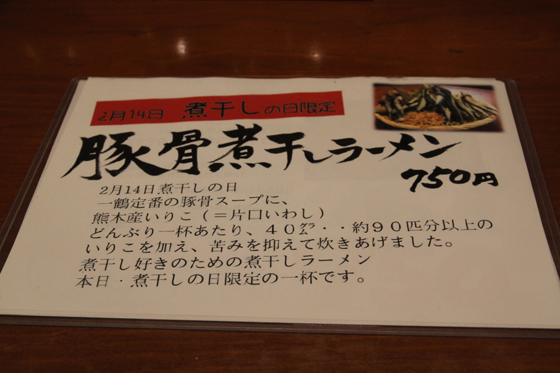 2月14日 煮干しの日限定
豚骨煮干しラーメン
750円
2月14日煮干しの日
一鶴定番の豚骨スープに、
熊本産いりこ（＝片口いわし）
どんぶり一杯あたり、４０㌘・・約９０匹分以上の
いりこを加え、苦みを抑えて炊きあげました。
煮干し好きのための煮干しラーメン
本日・煮干しの日限定の一杯です。